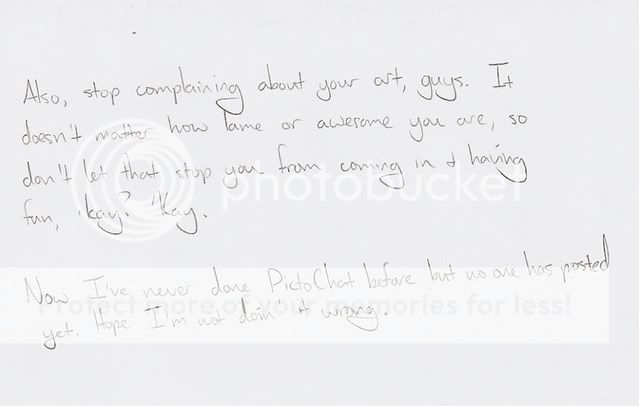 Also, stop complaining about your art, guys. It
doesn't matter how lame or awesome you are, so
don't let that stop you from coming in & having
fun, 'kay? 'Kay.
Now I've never done PictoChat before but no one has posted
yet. Hope I'm not doin' it wrong.
photobucket
Protect more of your memories for less!